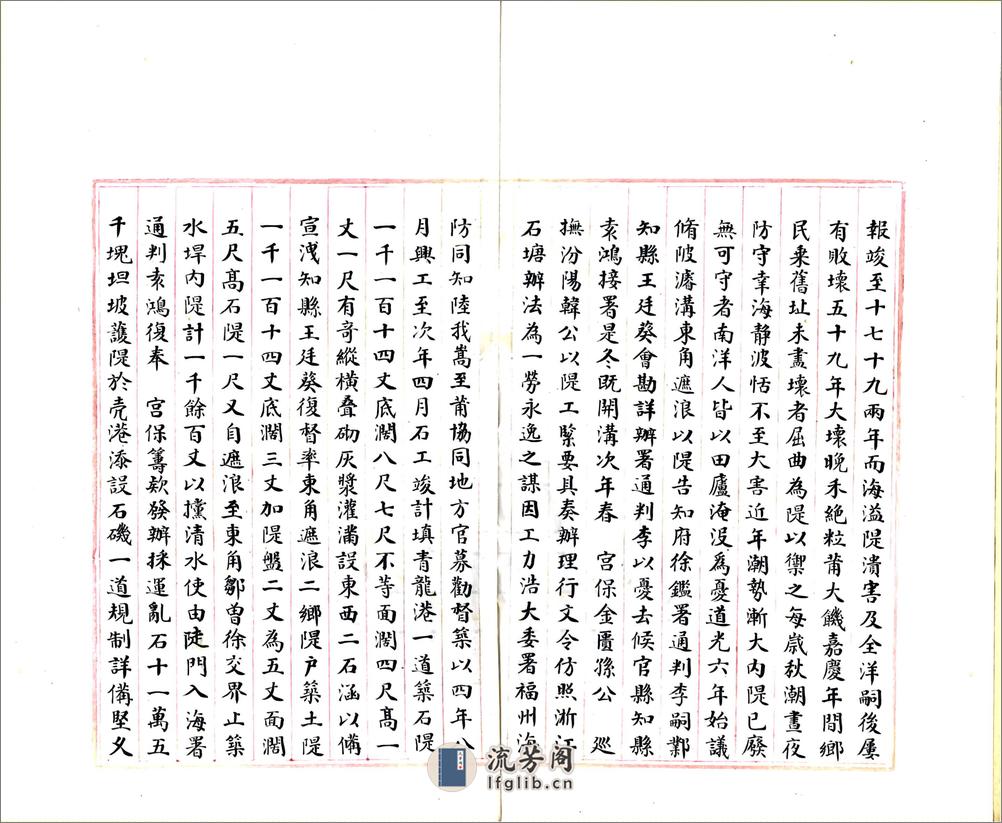 報竣至十七十九兩年而海溢隄潰害及全洋嗣後屢
有敗壞五十九年大壞晚禾絶粒莆大饑嘉慶年間鄉
民乘舊址未盡壞者屈曲為隄以禦之每歲秋潮晝夜
防守幸海静波恬不至大害近年潮勢漸大内隄已廢
無可守者南洋人皆以田廬淹没為憂道光六年始議
脩陂濬溝東角遮浪以隄告知府徐鑑署通判李嗣鄴
知縣王廷葵會勘詳辦署通判李以憂去候官縣知縣
袁鴻接署是冬既開溝次年春 宫保金匱孫公 巡
撫汾陽韓公以隄工緊要具奏辦理行文令仿照浙江
石塘辦法為一勞永逸之謀因工力浩大委署福州海
防同知陸我嵩至莆協同地方官募勸督築以四年八
月興工至次年四月石工竣計填青龍港一道築石隄
一千一百十四丈底濶八尺七尺不等面濶四尺高一
丈一尺有奇縱横叠砌灰漿灌滿設東西二石涵以備
宣洩知縣王廷葵復督率東角遮浪二鄉隄户築土隄
一千一百十四丈底濶三丈加隄盤二丈為五丈面濶
五尺高石隄一尺又自遮浪至東角鄒曾徐交界止築
水埕内隄計一千餘百丈以攩清水使由陡門入海署
通判袁鴻復奉 宫保籌欵發辦採運亂石十一萬五
千塊坦坡護隄於壳港添設石磯一道規制詳備堅乂
流芳阁
lfglib.cn